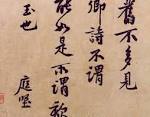 舊不多見
卿詩不謂
能如是所謂歌
玉也
庭堅